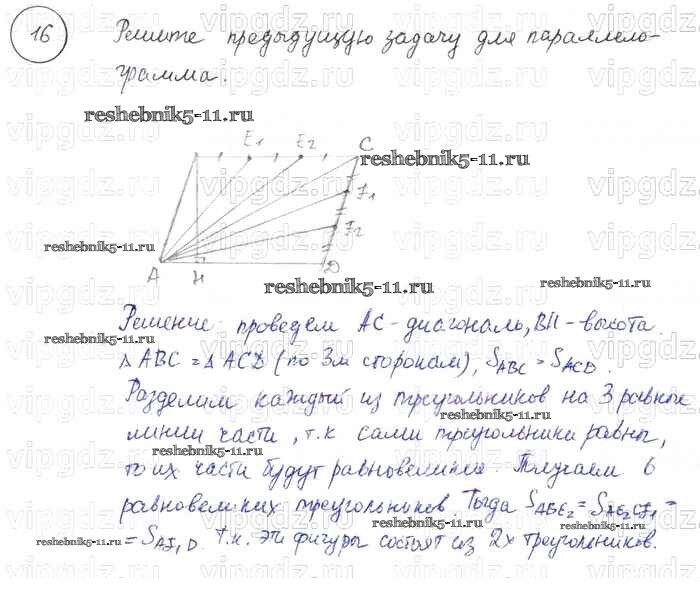 16 Решите предыдущую задачу для параллело-
грамма.
reshebnik5-11.ru
E1 E2 C
reshebnik5-11.ru
F1
F2
reshebnik5-11.ru
A H D
reshebnik5-11.ru
reshebnik5-11.ru
Решение: проведем AC-диагональ, BH-высота.
reshebnik5-11.ru
Δ ABC = Δ ACD (по 3м сторонам), SABC = SACD.
Разделим каждый из треугольников на 3 равные
reshebnik5-11.ru
линии части, т.к сами треугольники равны,
reshebnik5-11.ru
то их части будут равновеликие. Получаем 6
равновеликих треугольников. Тогда SABE2 = SAE2CF1 =
reshebnik5-11.ru
= SAF1D. т.к. эти фигуры состоят из 2х треугольников.
reshebnik5-11.ru
vipgdz.ru